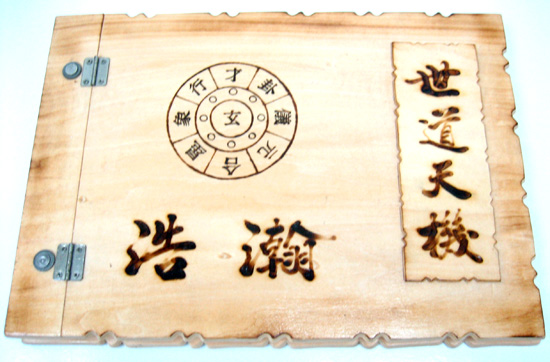 世道天機
才卦儀元合星象行
玄
浩瀚